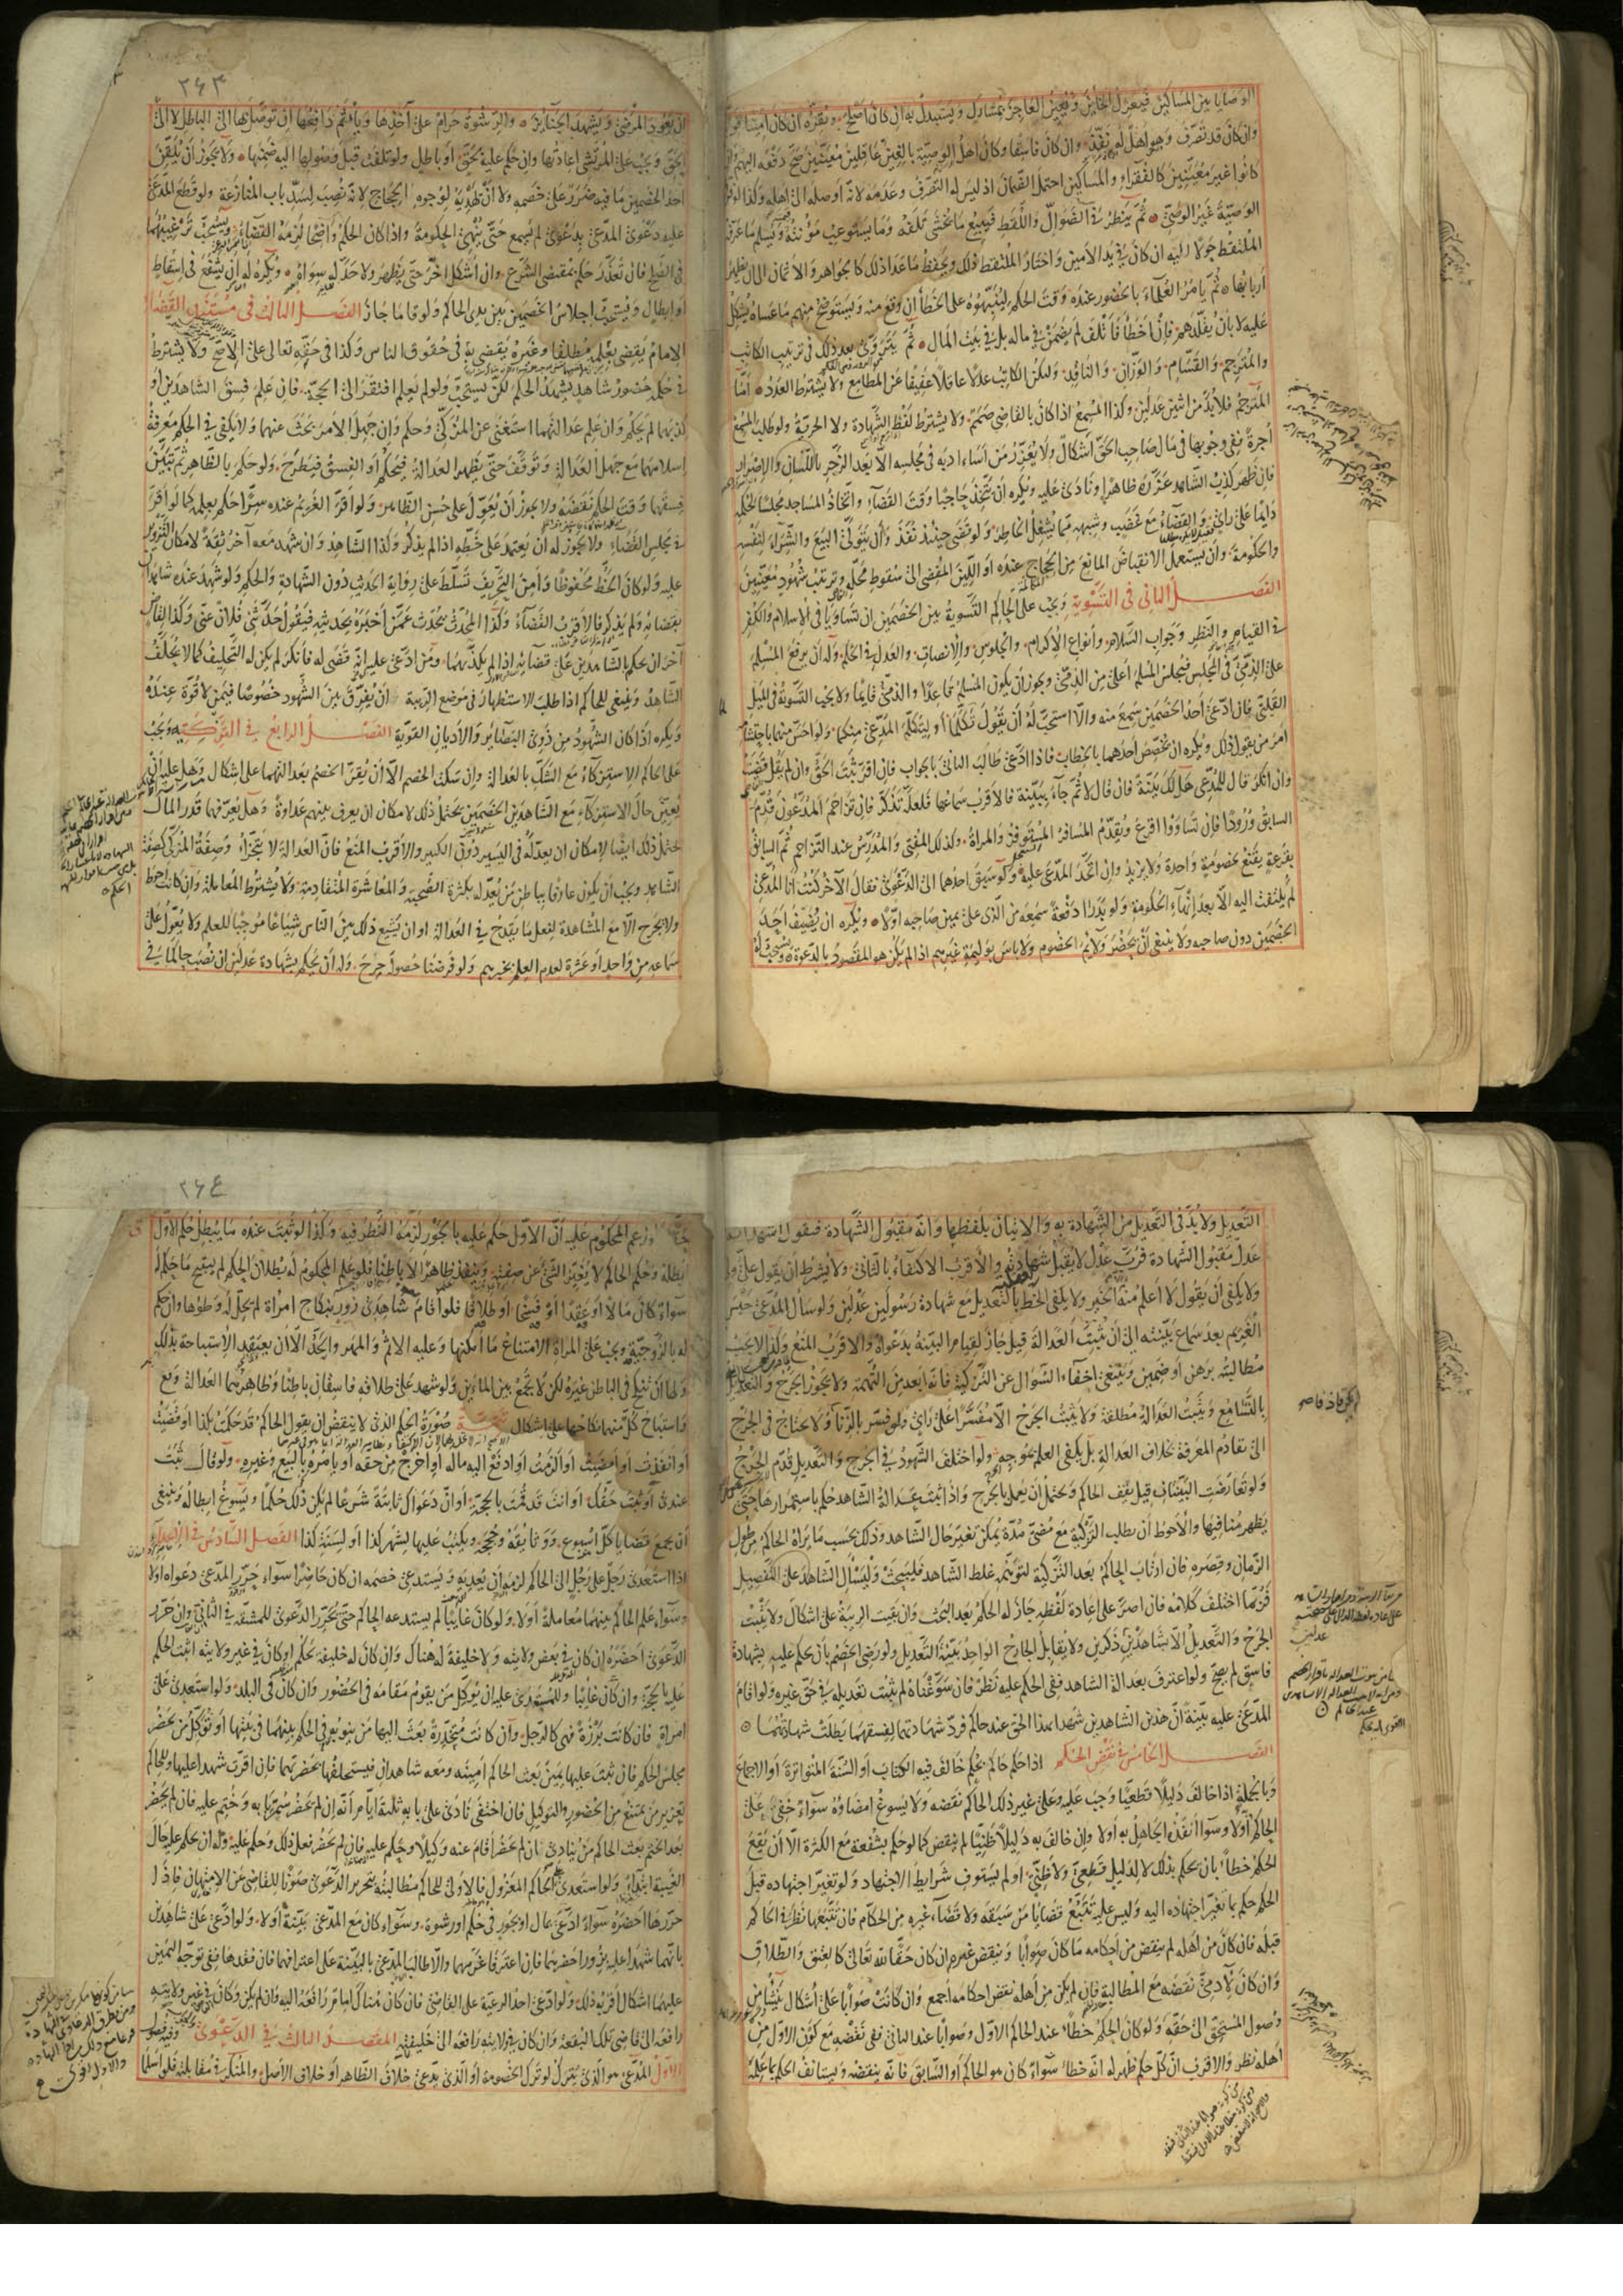 الوصايا بين المساكين فيعزل الخاين ويعين العاجز بمشارك ويستبدل به ان كان اصلح ويقره ان كان امينا قويا
وان كان قد تصرف وهو اهل له نفذ وان كان فاسقا وكان اهل الوصية بالغين عاقلين معينين صح دفعه اليهم وان
كانوا غير معينين كالفقراء والمساكين احتمل الضمان اذ ليس له التصرف وعدمه لانه اوصله الى اهله وكذا لو فرق
الوصية غير الوصي ثم ينظر في الضوال واللقط فيبيع ما يخشى تلفه وما يستوعب مؤنته ويسلم ما عرفه
الملتقط حولا اليه ان كان في يد الامين واختار الملتقط ذلك ويحفظ ما عدا ذلك كالجواهر والاثمان الى ان يظهر
اربابها ثم يأمر العلماء بالحضور عنده وقت الحكم لينبهوه على الخطأ ان وقع منه ويستوضح منهم ما عساه يشكل
عليه لا بان يقلدهم فان اخطأ فاتلف لم يضمن في ماله بل في بيت المال ثم يتروى بعد ذلك في ترتيب الكاتب
والمترجم والقسام والوزان والناقد وليكن الكاتب عدلا عاقلا عفيفا عن المطامع ولا يشترط العدد اما
المترجم فلا بد من اثنين عدلين وكذا المسمع اذا كان بالقاضي صمم ولا يشترط لفظ الشهادة ولا الحرية ولو طلب المسمع
اجرة ففي وجوبها في مال صاحب الحق اشكال ولا يعزر من اساء ادبه في مجلسه الا بعد الزجر باللسان والاصرار
فان ظهر كذب الشاهد عزره ظاهرا ونادى عليه ويكره ان يتخذ حاجبا وقت القضاء واتخاذ المساجد مجلسا للحكم
دائما على رأي والقضاء مع غضب وشبهه مما يشغل الخاطر ولو قضى حينئذ نفذ وان يتولى البيع والشراء لنفسه
والحكومة وان يستعمل الانقباض المانع من الحجاج عنده او اللين المفضي الى سقوط محله وترتيب شهود معينين
الفصل الثاني في التسوية ويجب على الحاكم التسوية بين الخصمين ان تساويا في الاسلام والكفر
في القيام والنظر وجواب السلام وانواع الاكرام والجلوس والانصات والعدل في الحكم وله ان يرفع المسلم
على الذمي في المجلس فيجلس المسلم اعلى من الذمي ويجوز ان يكون المسلم قاعدا والذمي قائما ولا يجب التسوية في الميل
القلبي فان ادعى احد الخصمين سمع منه والا استحب له ان يقول تكلما او ليتكلم المدعي منكما ولو احس منهما باحتشام
امر من يقول ذلك ويكره ان يخصص احدهما بالخطاب فاذا ادعى طالب الثاني بالجواب فان اقر ثبت الحق وان لم يقل قضيت
وان انكر قال للمدعي هل لك بينة فان قال لا ثم جاء ببينة فالاقرب سماعها فلعله تذكر فان تزاحم المدعون قدم
السابق ورودا فان تساووا اقرع ويقدم المسافر المستوفز والمرأة وكذلك المفتي والمدرس عند التزاحم ثم السابق
بقرعة يقنع بخصومة واحدة ولا يزيد وان اتحد المدعى عليه ولو سبق احدهما الى الدعوى فقال الآخر كنت انا المدعي
لم يلتفت اليه الا بعد انهاء الحكومة ولو بدرا دفعة سمع من الذي على يمين صاحبه اولا ويكره ان يضيف احد
الخصمين دون صاحبه ولا ينبغي ان يحضر ولائم الخصوم ولا بأس بوليمة غيرهم اذا لم يكن هو المقصود بالدعوة ويستحب له
٢٦٣
ان يعود المرضى ويشهد الجنائز والرشوة حرام على آخذها ويأثم دافعها ان توصل بها الى الباطل لا الى
الحق ويجب على المرتشي اعادتها وان حكم عليه بحق او باطل ولو تلفت قبل وصولها اليه ضمنها ولا يجوز ان يلقن
احد الخصمين ما فيه ضرر على خصمه ولا ان يهديه لوجوه الحجاج لانه نصب لسد باب المنازعة ولو قطع المدعى
عليه دعوى المدعي بدعوى لم يسمع حتى ينهي الحكومة واذا كان الحكم واضحا لزمه القضاء ويستحب ترغيبهما
في الصلح فان تعذر حكم بمقتضى الشرع وان اشكل اخر حتى يظهر ولا حد له سواه ويكره له ان يشفع في اسقاط
او ابطال ويستحب اجلاس الخصمين بين يدي الحاكم ولو قاما جاز الفصل الثالث في مستند القضاء
الامام يقضي بعلمه مطلقا وغيره يقضي به في حقوق الناس وكذا في حقه تعالى على الاصح ولا يشترط
في حكمه حضور شاهد يشهد الحكم لكن يستحب ولو لم يعلم افتقر الى الحجة فان علم فسق الشاهدين او
كذبهما لم يحكم وان علم عدالتهما استغنى عن المزكي وحكم وان جهل الامر بحث عنهما ولا يكفي في الحكم معرفة
اسلامهما مع جهل العدالة وتوقف حتى يظهر العدالة فيحكم او الفسق فيطرح ولو حكم بالظاهر ثم تبين
فسقهما وقت الحكم نقضه ولا يجوز ان يعول على حسن الظاهر ولو اقر الغريم عنده سرا حكم بعلمه كما لو اقر
في مجلس القضاء ولا يجوز له ان يعتمد على خطه اذا لم يذكر وكذا الشاهد وان شهد معه آخر ثقة لامكان التزوير
عليه ولو كان الخط محفوظا وامن التحريف تسلط على رواية الحديث دون الشهادة والحكم ولو شهد عنده شاهدان
بقضائه ولم يذكر فالاقرب القضاء وكذا المحدث يحدث عمن اخبره بحديثه فيقول حدثني فلان عني وكذا القاضي
آخر ان يحكم بالشاهدين على قضائه اذا لم يكذبهما ومن ادعى عليه انه قضى له فانكر لم يكن له التحليف كما لا يحلف
الشاهد وينبغي للحاكم اذا طلب الاستظهار في موضع الريبة ان يفرق بين الشهود خصوصا فيمن لا قوة عنده
ويكره اذا كان الشهود من ذوي البصائر والاديان القوية الفصل الرابع في التزكية ويجب
على الحاكم الاستزكاء مع الشك بالعدالة وان سكت الخصم الا ان يقر الخصم بعدالتهما على اشكال وهل عليه ان
يعين حال الاستزكاء مع الشاهدين الخصمين يحتمل ذلك لامكان ان يعرف بينهم عداوة وهل يعرفهما قدر المال
يحتمل ذلك ايضا لامكان ان يعدله في اليسير دون الكثير والاقرب المنع فان العدالة لا تتجزأ وصفة المزكي كصفة
الشاهد ويجب ان يكون عارفا بباطن من يعدله بكثرة الصحبة والمعاشرة المتقادمة ولا يشترط المعاملة وان كانت احوط
ولا يجرح الا مع المشاهدة لفعل ما يقدح في العدالة او ان يشيع ذلك بين الناس شياعا موجبا للعلم ولا يعول على
سماعه من واحد او عشرة لعدم العلم بخبرهم ولو فرضنا حصوله جرح وله ان يحكم بشهادة عدلين ان نصب حاكما في
التعديل ولا بد في التعديل من الشهادة به والاتيان بلفظها وانه مقبول الشهادة فيقول اشهد انه
عدل مقبول الشهادة فرب عدل لا يقبل شهادته والاقرب الاكتفاء بالثاني ولا يشترط ان يقول علي ولي
ولا يكفي ان يقول لا اعلم منه الا الخير ولا يكفي الخط بالتعديل مع شهادة رسولين عدلين ولو سأل المدعي حبس
الغريم بعد سماع بينته الى ان تثبت العدالة قيل جاز لقيام البينة بدعواه والاقرب المنع وكذا لا يجب
مطالبته برهن او ضمين وينبغي اخفاء السؤال عن التزكية فانه ابعد من التهمة ولا يجوز الجرح والتعديل
بالتسامع ويثبت العدالة مطلقة ولا يثبت الجرح الا مفسرا على رأي ولو فسر بالزنا ولا يحتاج في الجرح
الى تقادم المعرفة بخلاف العدالة بل يكفي العلم بموجبه ولو اختلف الشهود في الجرح والتعديل قدم الجرح
ولو تعارضت البينتان قيل يقف الحاكم ويحتمل ان يعمل بالجرح واذا ثبتت عدالة الشاهد حكم باستمرارها حتى
يظهر منافيها والاحوط ان يطلب التزكية مع مضي مدة يمكن تغير حال الشاهد وذلك بحسب ما يراه الحاكم من طول
الزمان وقصره فان ارتاب الحاكم بعد التزكية لتوهم غلط الشاهد فليبحث وليسأل الشاهد على التفصيل
فربما اختلف كلامه فان اصر على اعادة لفظه جاز له الحكم بعد البحث وان بقيت الريبة على اشكال ولا يثبت
الجرح والتعديل الا بشاهدين ذكرين ولا يقابل الجارح الواحد بينة التعديل ولو رضي الخصم بان يحكم عليه بشهادة
فاسق لم يصح ولو اعترف بعدالة الشاهد ففي الحكم عليه نظر فان سوغناه لم يثبت تعديله في حق غيره ولو اقام
المدعى عليه بينة ان هذين الشاهدين شهدا بهذا الحق عند حاكم فرد شهادتهما لفسقهما بطلت شهادتهما
الفصل الخامس في نقض الحكم اذا حكم حاكم بحكم خالف فيه الكتاب او السنة المتواترة او الاجماع
وبالجملة اذا خالف دليلا قطعيا وجب عليه وعلى غير ذلك الحاكم نقضه ولا يسوغ امضاؤه سواء خفي على
الحاكم اولا وسواء انفذه الجاهل به اولا وان خالف به دليلا ظنيا لم ينقض كما لو حكم بشفعة مع الكثرة الا ان يقع
الحكم خطأ بان يحكم بذلك لا لدليل قطعي ولا ظني او لم يستوف شرايط الاجتهاد ولو تغير اجتهاده قبل
الحكم حكم بما تغير اجتهاده اليه وليس عليه تتبع قضايا من سبقه ولا قضاء غيره من الحكام فان تتبعها نظر في الحاكم
قبله فان كان من اهله لم ينقض من احكامه ما كان صوابا وينقض غيره ان كان حقا لله تعالى كالعتق والطلاق
وان كان لآدمي نقضه مع المطالبة فان لم يكن من اهله نقض احكامه اجمع وان كانت صوابا على اشكال ينشأ من
وصول المستحق الى حقه ولو كان الحكم خطأ عند الحاكم الاول وصوابا عند الثاني ففي نقضه مع كون الاول من
اهله نظر والاقرب ان كل حكم ظهر له انه خطأ سواء كان هو الحاكم او السابق فانه ينقضه ويستأنف الحكم بما علمه
٢٦٤
ولو زعم المحكوم عليه ان الاول حكم عليه بالجور لزمه النظر فيه وكذا لو ثبت عنده ما يبطل حكم الاول
ابطله وحكم الحاكم لا يغير الشيء عن صفته وينفذ ظاهرا لا باطنا فلو علم المحكوم له بطلان الحكم لم يستبح ما حكم له
سواء كان مالا او عقدا او فسخا او طلاقا فلو اقام شاهدي زور بنكاح امرأة لم يحل له وطؤها وان حكم
له بالزوجية ويجب على المرأة الامتناع ما امكنها وعليه الاثم والمهر والحد الا ان يعتقد الاستباحة بذلك
ولها ان تنكح في الباطن غيره لكن لا تجمع بين المائين ولو شهد على طلاقه فاسقان باطنا وظاهرهما العدالة وقع
واستباح كل منهما نكاحها على اشكال تتمة صورة الحكم الذي لا ينقض ان يقول الحاكم قد حكمت بكذا او قضيت
او انفذت او امضيت او الزمت او ادفع اليه ماله او اخرج من حقه او يأمره بالبيع وغيره ولو قال ثبت
عندي او ثبت حقك او انت قد قمت بالحجة او ان دعواك ثابتة شرعا لم يكن ذلك حكما ويسوغ ابطاله وينبغي
ان يجمع قضايا كل اسبوع ووثائقه وحججه ويكتب عليها لشهر كذا او لسنة كذا الفصل السادس في الاعداء
اذا استعدى رجل على رجل الى الحاكم لزمه ان يعديه ويستدعي خصمه ان كان حاضرا سواء حرر المدعي دعواه اولا
وسواء علم الحاكم بينهما معاملة اولا ولو كان غائبا لم يستدعه الحاكم حتى يحرر الدعوى للمشقة في الثاني وان حرر
الدعوى احضره ان كان في بعض ولايته ولا خليفة له هناك وان كان له خليفة يحكم او كان في غير ولايته اثبت الحكم
عليه بالحجة وان كان غائبا وللمستعدى عليه ان يوكل من يقوم مقامه في الحضور وان كان في البلد ولو استعدى على
امرأة فان كانت برزة فهي كالرجل وان كانت مخدرة بعث اليها من ينوبه في الحكم بينهما في بيتها او توكل من يحضر
مجلس الحكم فان ثبت عليها يمين بعث الحاكم امينه ومعه شاهدان فيستحلفها بحضرتهما فان اقرت شهدا عليها وللحاكم
تعزير من يمتنع من الحضور والتوكيل فان اختفى نادى على بابه ثلثة ايام انه ان لم يحضر سمر بابه وختم عليه فان لم يحضر
بعد الختم بعث الحاكم من ينادي ان لم يحضر اقام عنه وكيلا وحكم عليه فان لم يحضر فعل ذلك وحكم عليه وله ان يحكم عليه حال
الغيبة ابتداء ولو استعدى على الحاكم المعزول فالاولى للحاكم مطالبته بتحرير الدعوى صونا للقاضي عن الامتهان فاذا
حررها احضره سواء ادعى بمال او بجور في حكم او رشوة وسواء كان مع المدعي بينة اولا ولو ادعى على شاهدين
بانهما شهدا عليه بزور احضرهما فان اعترفا غرمهما والا طالب المدعي بالبينة على اعترافهما فان فقدها ففي توجه اليمين
عليهما اشكال اقربه ذلك ولو ادعى احد الرعية على القاضي فان كان هناك امام رافعه اليه وان لم يكن وكان في غير ولايته
رافعه الى قاضي تلك البقعة وان كان في ولايته رافعه الى خليفته المقصد الثالث في الدعوى وفيه فصول
الاول المدعي هو الذي يترك لو ترك الخصومة او الذي يدعي خلاف الظاهر او خلاف الاصل والمنكر في مقابله فلو اسلما